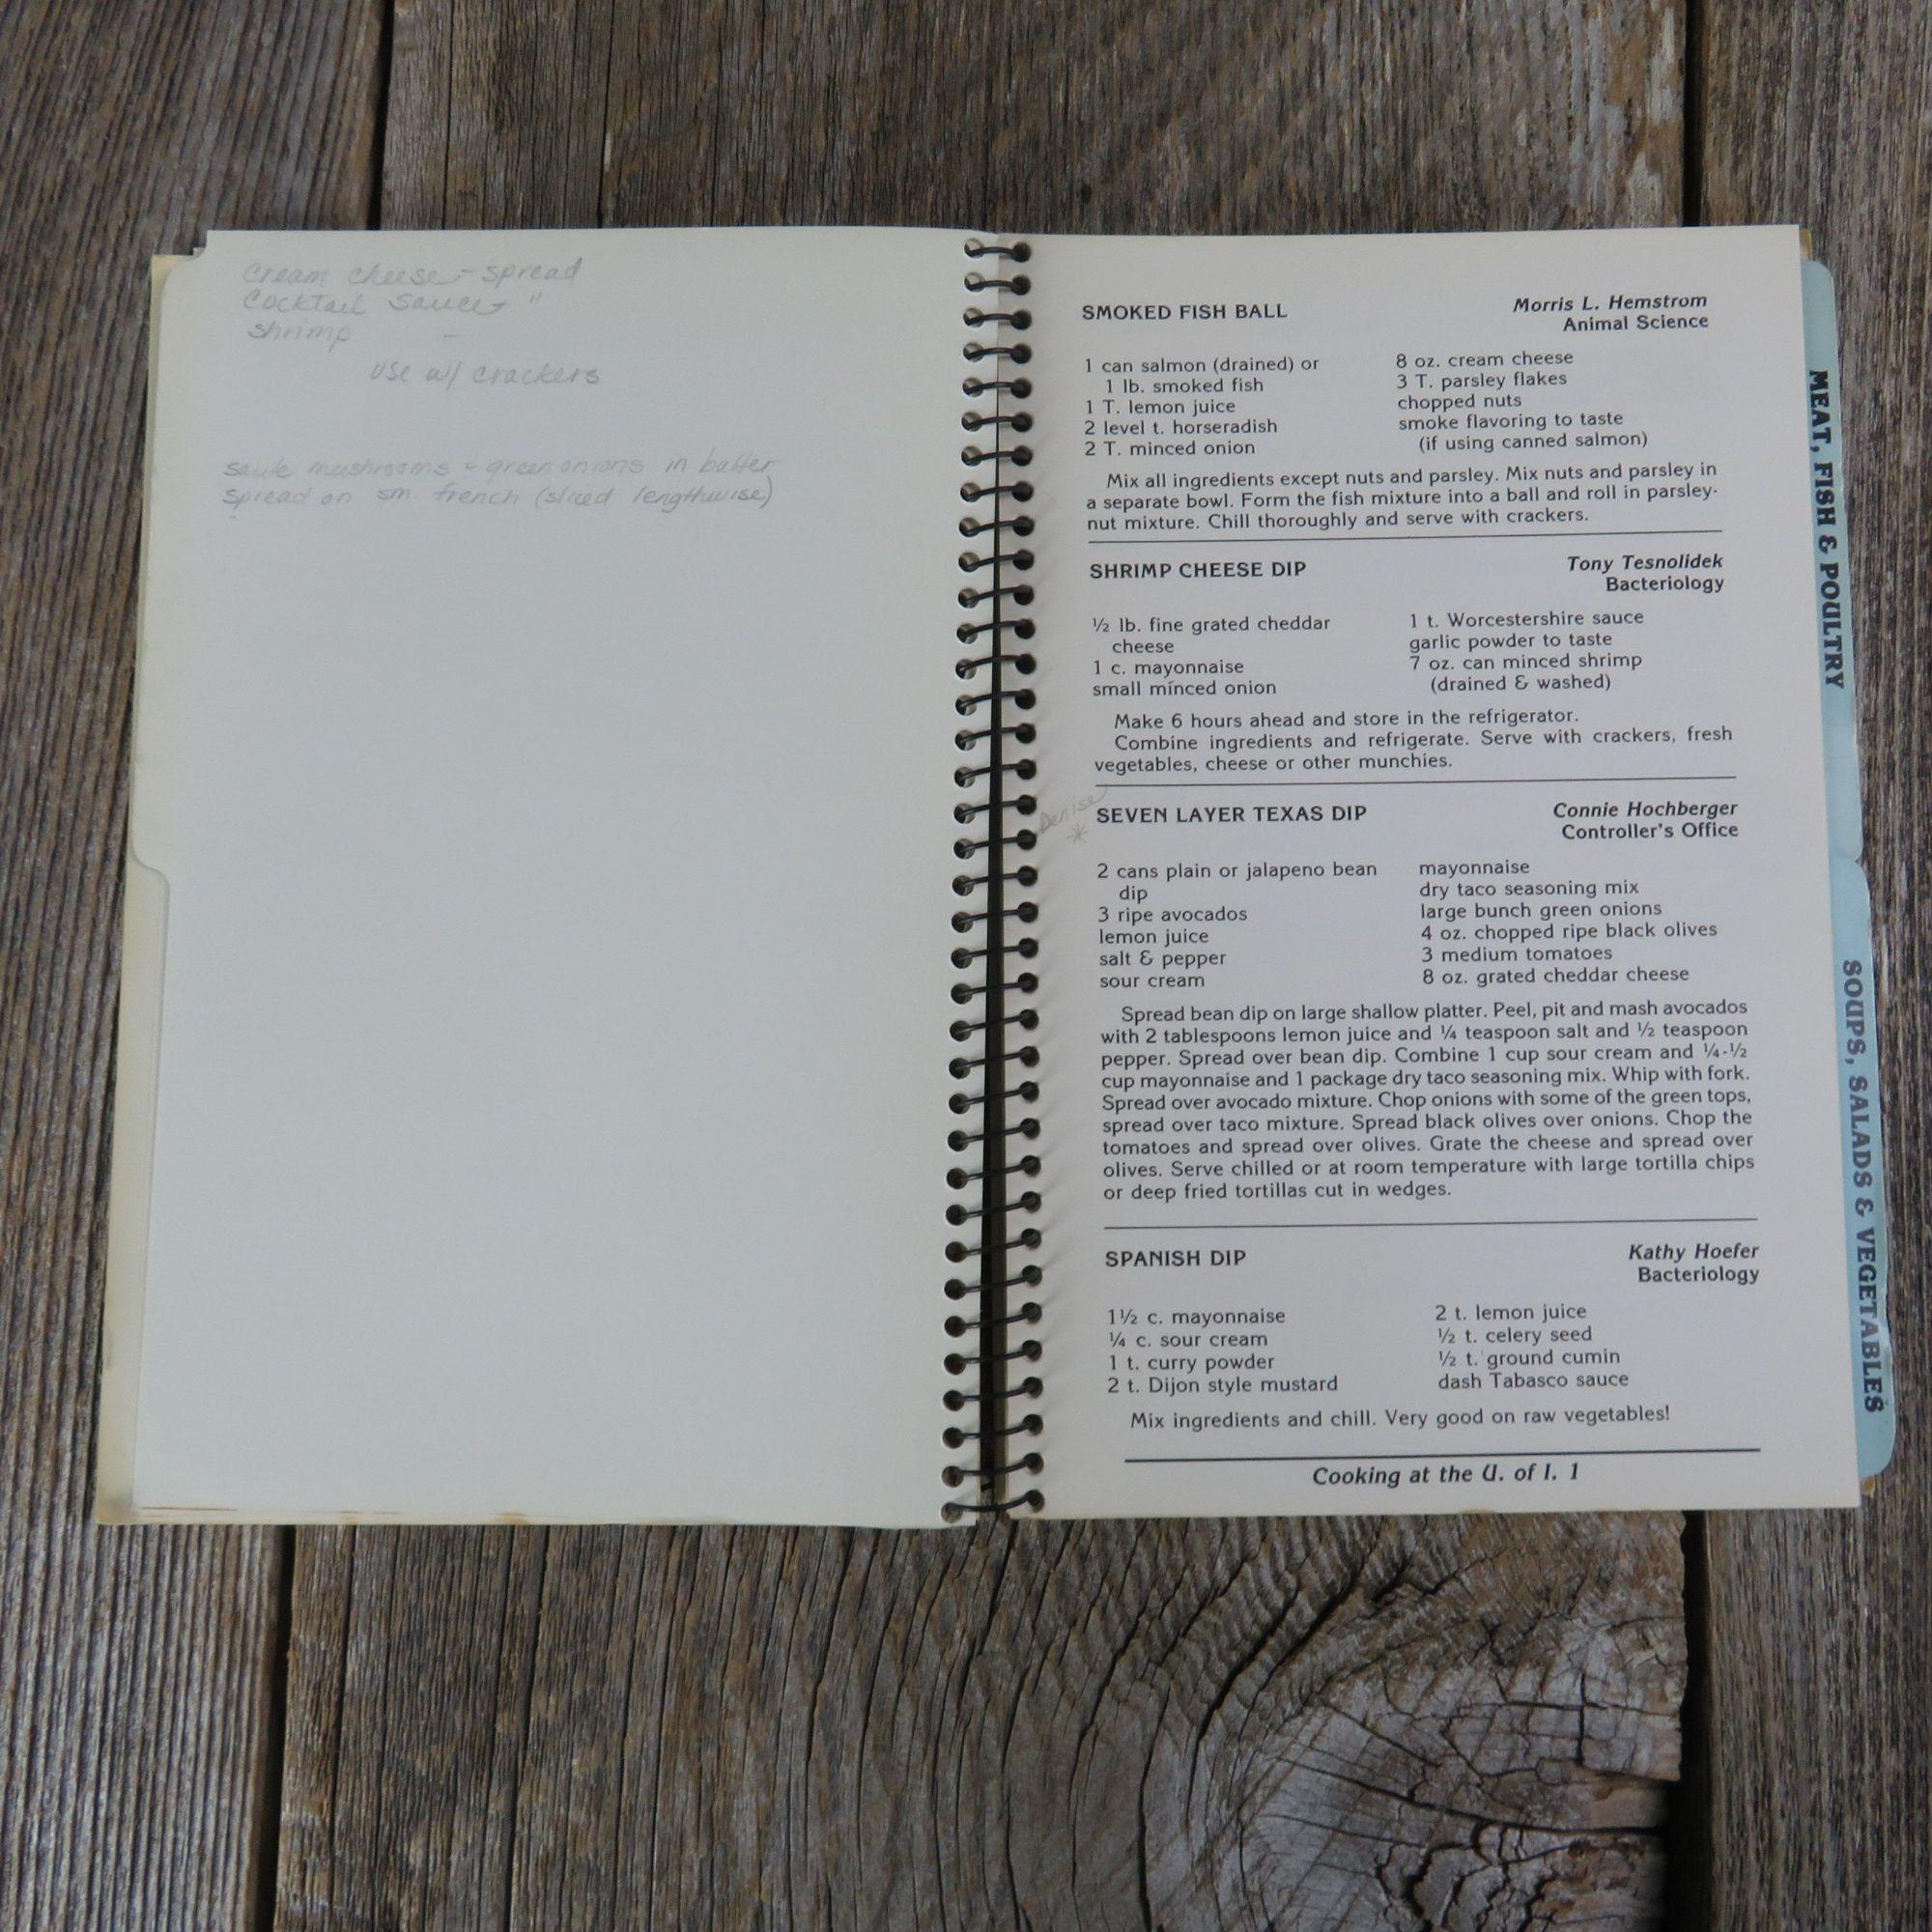 Cream cheese - spread
Cocktail sauce - "
shrimp -
use w/ crackers
saute mushrooms + green onions in butter
spread on sm. french (sliced lengthwise)
SMOKED FISH BALL
Morris L. Hemstrom
Animal Science
1 can salmon (drained) or
1 lb. smoked fish
1 T. lemon juice
2 level t. horseradish
2 T. minced onion
8 oz. cream cheese
3 T. parsley flakes
chopped nuts
smoke flavoring to taste
(if using canned salmon)
Mix all ingredients except nuts and parsley. Mix nuts and parsley in
a separate bowl. Form the fish mixture into a ball and roll in parsley-
nut mixture. Chill thoroughly and serve with crackers.
SHRIMP CHEESE DIP
Tony Tesnolidek
Bacteriology
½ lb. fine grated cheddar
cheese
1 c. mayonnaise
small minced onion
1 t. Worcestershire sauce
garlic powder to taste
7 oz. can minced shrimp
(drained & washed)
Make 6 hours ahead and store in the refrigerator.
Combine ingredients and refrigerate. Serve with crackers, fresh
vegetables, cheese or other munchies.
Denise
*
SEVEN LAYER TEXAS DIP
Connie Hochberger
Controller's Office
2 cans plain or jalapeno bean
dip
3 ripe avocados
lemon juice
salt & pepper
sour cream
mayonnaise
dry taco seasoning mix
large bunch green onions
4 oz. chopped ripe black olives
3 medium tomatoes
8 oz. grated cheddar cheese
Spread bean dip on large shallow platter. Peel, pit and mash avocados
with 2 tablespoons lemon juice and ¼ teaspoon salt and ½ teaspoon
pepper. Spread over bean dip. Combine 1 cup sour cream and ¼-½
cup mayonnaise and 1 package dry taco seasoning mix. Whip with fork.
Spread over avocado mixture. Chop onions with some of the green tops,
spread over taco mixture. Spread black olives over onions. Chop the
tomatoes and spread over olives. Grate the cheese and spread over
olives. Serve chilled or at room temperature with large tortilla chips
or deep fried tortillas cut in wedges.
SPANISH DIP
Kathy Hoefer
Bacteriology
1½ c. mayonnaise
¼ c. sour cream
1 t. curry powder
2 t. Dijon style mustard
2 t. lemon juice
½ t. celery seed
½ t. ground cumin
dash Tabasco sauce
Mix ingredients and chill. Very good on raw vegetables!
Cooking at the U. of I. 1
MEAT, FISH & POULTRY
SOUPS, SALADS & VEGETABLES